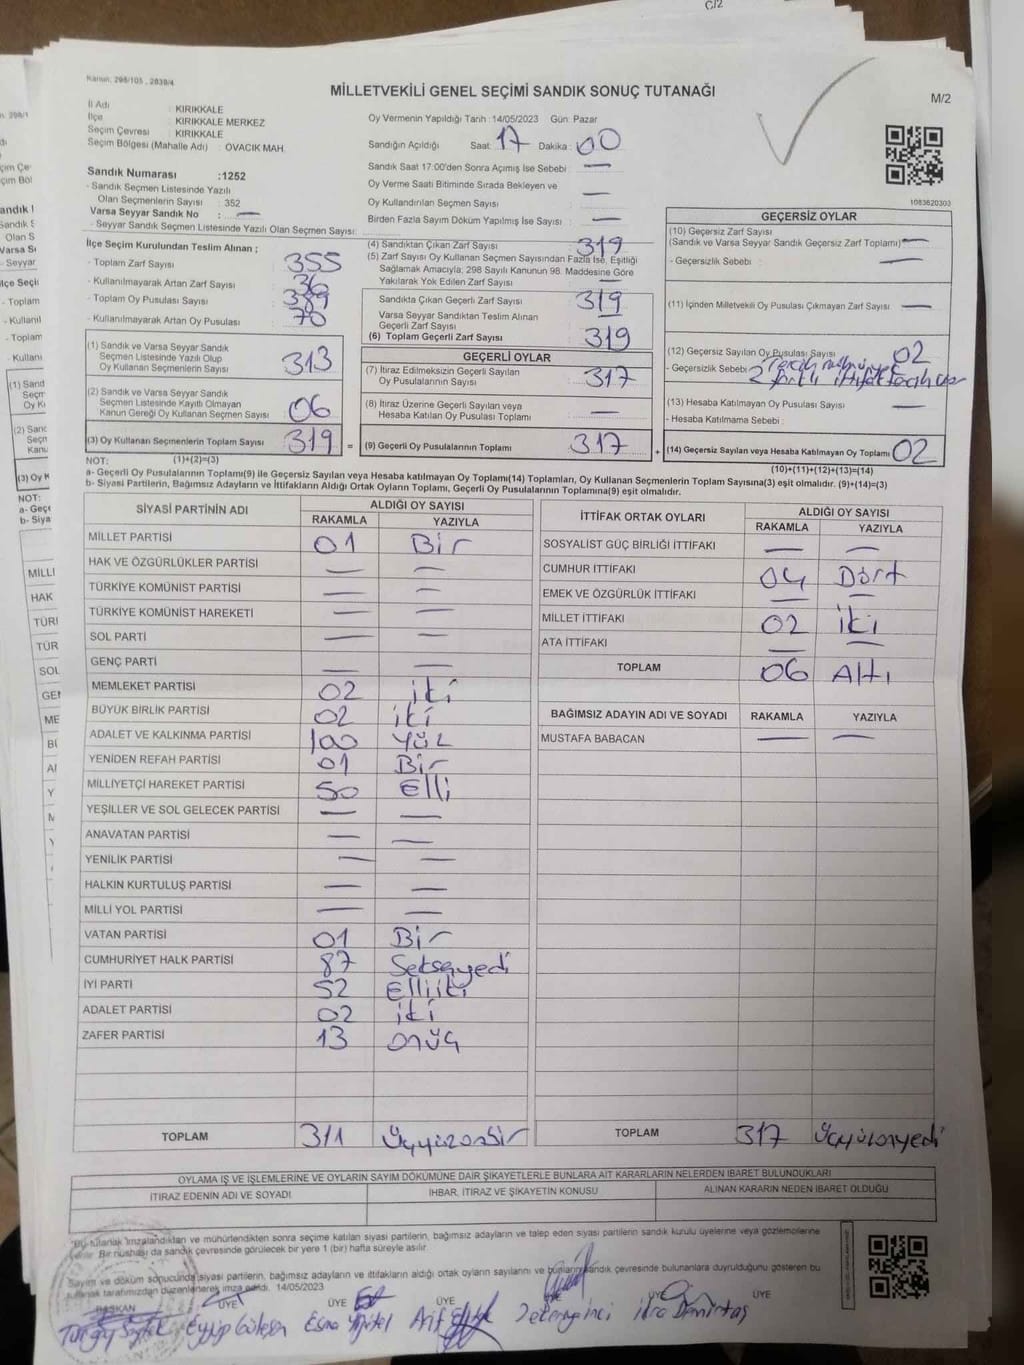 C/2
Kanun: 298/105 , 2839/4
MİLLETVEKİLİ GENEL SEÇİMİ SANDIK SONUÇ TUTANAĞI
M/2
İl Adı : KIRIKKALE
İlçe : KIRIKKALE MERKEZ
Seçim Çevresi : KIRIKKALE
Seçim Bölgesi (Mahalle Adı) : OVACIK MAH.
Oy Vermenin Yapıldığı Tarih :14/05/2023 Gün: Pazar
Sandığın Açıldığı Saat: 17 Dakika: 00
Sandık Saat 17:00'den Sonra Açımış İse Sebebi : —
Oy Verme Saati Bitiminde Sırada Bekleyen ve
Oy Kullandırılan Seçmen Sayısı : —
Birden Fazla Sayım Döküm Yapılmış İse Sayısı : —
1083620303
Sandık Numarası :1252
- Sandık Seçmen Listesinde Yazılı
Olan Seçmenlerin Sayısı : 352
Varsa Seyyar Sandık No : —
- Seyyar Sandık Seçmen Listesinde Yazılı Olan Seçmen Sayısı: —
İlçe Seçim Kurulundan Teslim Alınan ;
- Toplam Zarf Sayısı : 355
- Kullanılmayarak Artan Zarf Sayısı : 36
- Toplam Oy Pusulası Sayısı : 389
- Kullanılmayarak Artan Oy Pusulası : 70
(1) Sandık ve Varsa Seyyar Sandık
Seçmen Listesinde Yazılı Olup
Oy Kullanan Seçmenlerin Sayısı : 313
(2) Sandık ve Varsa Seyyar Sandık
Seçmen Listesinde Kayıtlı Olmayan
Kanun Gereği Oy Kullanan Seçmen Sayısı : 06
(3) Oy Kullanan Seçmenlerin Toplam Sayısı : 319 =
(4) Sandıktan Çıkan Zarf Sayısı : 319
(5) Zarf Sayısı Oy Kullanan Seçmen Sayısından Fazla İse, Eşitliği
Sağlamak Amacıyla, 298 Sayılı Kanunun 98. Maddesine Göre
Yakılarak Yok Edilen Zarf Sayısı : —
Sandıkta Çıkan Geçerli Zarf Sayısı : 319
Varsa Seyyar Sandıktan Teslim Alınan
Geçerli Zarf Sayısı : —
(6) Toplam Geçerli Zarf Sayısı : 319
GEÇERLİ OYLAR
(7) İtiraz Edilmeksizin Geçerli Sayılan
Oy Pusulalarının Sayısı : 317
(8) İtiraz Üzerine Geçerli Sayılan veya
Hesaba Katılan Oy Pusulaları Toplamı : —
(9) Geçerli Oy Pusulalarının Toplamı : 317 +
GEÇERSİZ OYLAR
(10) Geçersiz Zarf Sayısı
(Sandık ve Varsa Seyyar Sandık Geçersiz Zarf Toplamı) : —
- Geçersizlik Sebebi : —
(11) İçinden Milletvekili Oy Pusulası Çıkmayan Zarf Sayısı : —
(12) Geçersiz Sayılan Oy Pusulası Sayısı : 02
- Geçersizlik Sebebi : Tercih
2
(13) Hesaba Katılmayan Oy Pusulası Sayısı : —
- Hesaba Katılmama Sebebi :
(14) Geçersiz Sayılan veya Hesaba Katılmayan Oy Toplamı : 02
NOT: (1)+(2)=(3) (10)+(11)+(12)+(13)=(14)
a- Geçerli Oy Pusulalarının Toplamı(9) ile Geçersiz Sayılan veya Hesaba katılmayan Oy Toplamı(14) Toplamları, Oy Kullanan Seçmenlerin Toplam Sayısına(3) eşit olmalıdır. (9)+(14)=(3)
b- Siyasi Partilerin, Bağımsız Adayların ve İttifakların Aldığı Ortak Oyların Toplamı, Geçerli Oy Pusulalarının Toplamına(9) eşit olmalıdır.
SİYASİ PARTİNİN ADI ALDIĞI OY SAYISI
RAKAMLA YAZIYLA
MİLLET PARTİSİ 01 Bir
HAK VE ÖZGÜRLÜKLER PARTİSİ — —
TÜRKİYE KOMÜNİST PARTİSİ — —
TÜRKİYE KOMÜNİST HAREKETİ — —
SOL PARTİ — —
GENÇ PARTİ — —
MEMLEKET PARTİSİ 02 iki
BÜYÜK BİRLİK PARTİSİ 02 iki
ADALET VE KALKINMA PARTİSİ 100 YÜZ
YENİDEN REFAH PARTİSİ 01 Bir
MİLLİYETÇİ HAREKET PARTİSİ 50 Elli
YEŞİLLER VE SOL GELECEK PARTİSİ — —
ANAVATAN PARTİSİ — —
YENİLİK PARTİSİ — —
HALKIN KURTULUŞ PARTİSİ — —
MİLLİ YOL PARTİSİ — —
VATAN PARTİSİ 01 Bir
CUMHURİYET HALK PARTİSİ 87 Seksenyedi
İYİ PARTİ 52 Elliiki
ADALET PARTİSİ 02 iki
ZAFER PARTİSİ 13 onüç
TOPLAM 311 Üçyüzonbir
İTTİFAK ORTAK OYLARI ALDIĞI OY SAYISI
RAKAMLA YAZIYLA
SOSYALİST GÜÇ BİRLİĞİ İTTİFAKI — —
CUMHUR İTTİFAKI 04 Dört
EMEK VE ÖZGÜRLÜK İTTİFAKI — —
MİLLET İTTİFAKI 02 iki
ATA İTTİFAKI — —
TOPLAM 06 Altı
BAĞIMSIZ ADAYIN ADI VE SOYADI RAKAMLA YAZIYLA
MUSTAFA BABACAN — —
TOPLAM 317 Üçyüzonyedi
OYLAMA İŞ VE İŞLEMLERİNE VE OYLARIN SAYIM DÖKÜMÜNE DAİR ŞİKAYETLERLE BUNLARA AİT KARARLARIN NELERDEN İBARET BULUNDUKLARI
İTİRAZ EDENİN ADI VE SOYADI İHBAR, İTİRAZ VE ŞİKAYETİN KONUSU ALINAN KARARIN NEDEN İBARET OLDUĞU
"Bu tutanak imzalandıktan ve mühürlendikten sonra seçime katılan siyasi partilerin, bağımsız adayların ve talep eden siyasi partilerin sandık kurulu üyelerine veya gözlemcilerine
verilir. Bir nüshası da sandık çevresinde görülecek bir yere 1 (bir) hafta süreyle asılır.
Sayım ve döküm sonucunda siyasi partilerin, bağımsız adayların ve ittifakların aldığı ortak oyların sayılarını ve bunların sandık çevresinde bulunanlara duyrulduğunu gösteren bu
tutanak tarafımızdan düzenlenerek imza edildi. 14/05/2023
BAŞKAN ÜYE ÜYE ÜYE ÜYE ÜYE
Eyyüp Gülesen Esma Yiğitel Arif